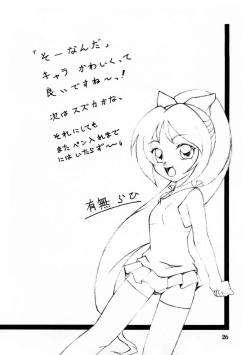 「そーなんだ」
キャラ かわいくって
良いですね〜っ!
次は スズカかな。
それにしても
またペン入れまで
にはいたらず〜。
有無 らひ
26